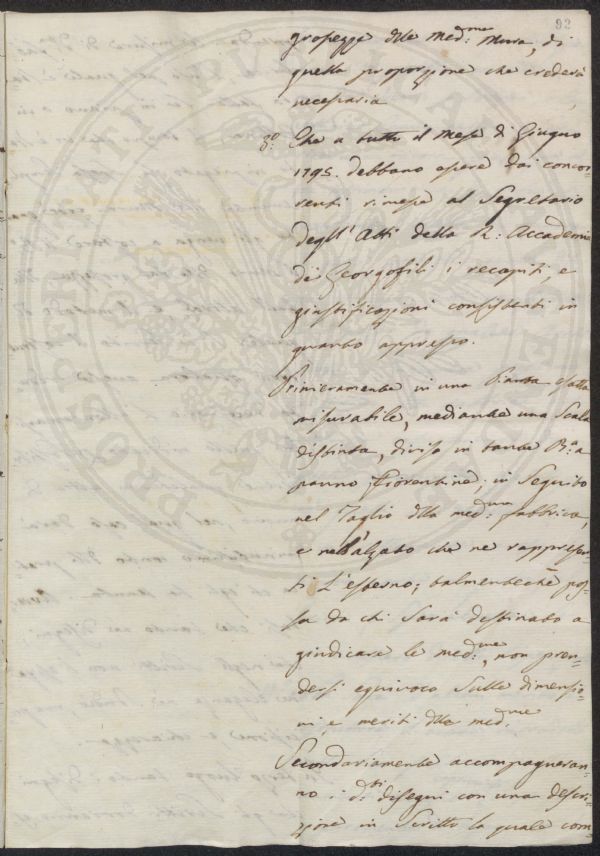 92
grossezze dlle med:me Mura, di
quella proporzione che crederà
necessaria
3.o Che a tutto il Mese di Giugno
1795. debbano essere dai concor-
renti rimesse al Segretario
degli Atti della R: Accademia
dei Georgofili i recapiti, e
giustificazioni consistenti in
quanto appresso.
Primieramente in una Pianta esatta
misurabile, mediante una Scala
distinta, divisa in tante B:a a
panno Fiorentine; in Seguito
nel Taglio dlla med:ma fabbrica,
e nell'alzato che ne rappresen-
ti L'esterno; talmenteché pos-
sa da chi sarà destinato a
giudicare le med:me, non pren-
dersi equivoco Sulle dimensio-
ni, e meriti dlle med:me
Secondariamente accompagneran-
no i d:ti disegni con una descri-
zione in Scritto la quale com
PROSPERITATI PUBLICAE